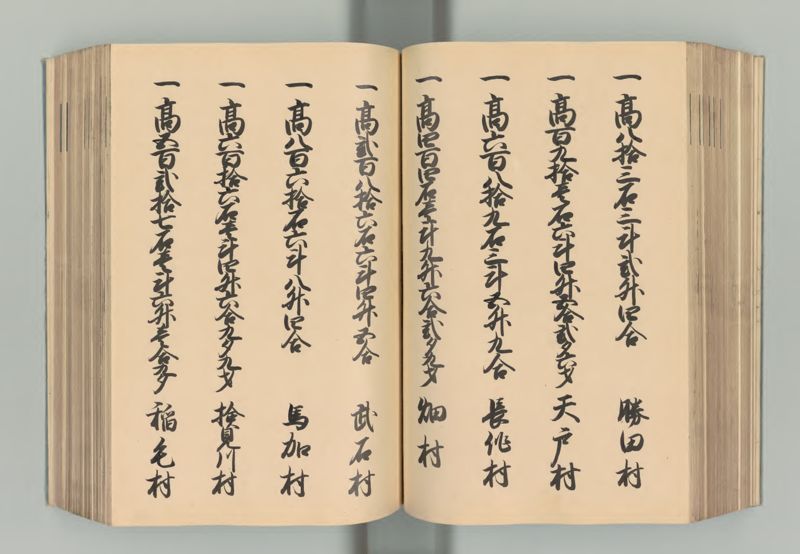 一高八拾三石三斗弐升四合 勝田村
一高百九拾壱石六斗四升五合弐夕六才 天戸村
一高六百八拾九石三斗五升九合 長作村
一高四百四石壱斗九升六合弐夕九才 畑村
一高弐百八拾六石六斗四升五合 武石村
一高八百六拾石六斗八升四合 馬加村
一高六百拾六石壱斗四升六合九夕九才 検見川村
一高五百弐拾七石壱斗六升壱合九夕 稲毛村